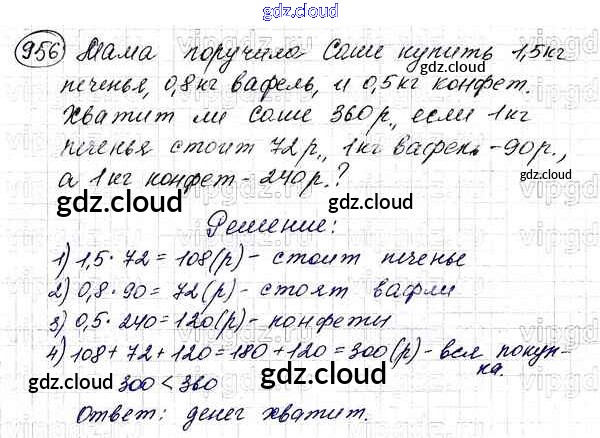 gdz.cloud
956 Мама поручила Саше купить 1,5кг
печенья, 0,8кг вафель, и 0,5кг конфет.
gdz.cloud
Хватит ли Саше 360р., если 1кг
печенья стоит 72р., 1кг вафель - 90р.,
а 1кг конфет - 240р.?
gdz.cloud gdz.cloud
Решение:
1) 1,5 · 72 = 108(р) - стоит печенье
gdz.cloud
2) 0,8 · 90 = 72(р) - стоят вафли
3) 0,5 · 240 = 120(р) - конфеты
gdz.cloud
4) 108 + 72 + 120 = 180 + 120 = 300(р) - вся покуп-
ка.
gdz.cloud 300 < 360 gdz.cloud
Ответ: денег хватит.
gdz.cloud